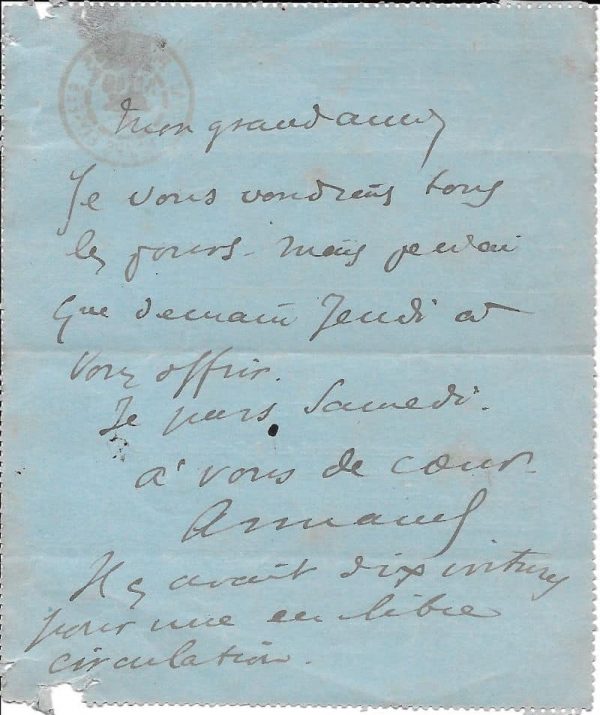 Mon grand ami
Je vous voudrais tous
les jours. Mais je n'ai
que demain Jeudi à
vous offrir.
Je pars Samedi.
à vous de cœur
Armand
Il y avait dix voitures
pour une en libre
circulation.